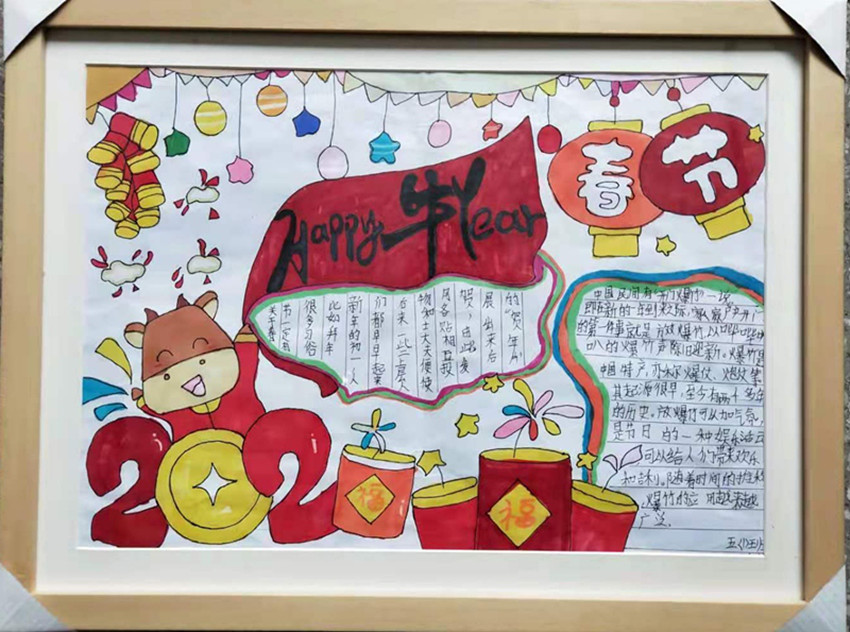 Happy 牛Year
春节
关于春
节一定有
很多习俗
比如拜年
新年的初一,人
们都早早起来
后来一些上层人
物如士大夫便使
用各贴相互投
贺,由此发
展出来后
的“贺年片
中国民间有“开门爆竹”一说
即在新的一年到来之际,家家户户开门
的第一件事就是放爆竹,以哔哔
叭的爆竹声除旧迎新。爆竹是
中国特产,亦称爆仗、炮仗
其起源很早,至今有两千多年
的历史。放爆竹可以加气氛,
是节日的一种娱乐活动
可以给人们带来欢乐
和吉利。随着时间的推移
爆竹的应用越来越
广泛.
202
福
福
五(1)班